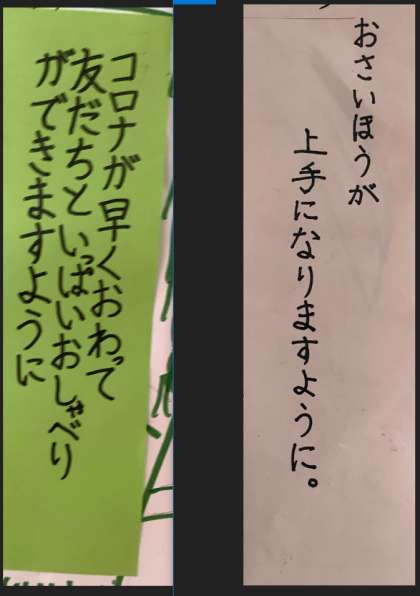 コロナが早くおわって
友だちといっぱいおしゃべり
ができますように
おさいほうが
上手になりますように。